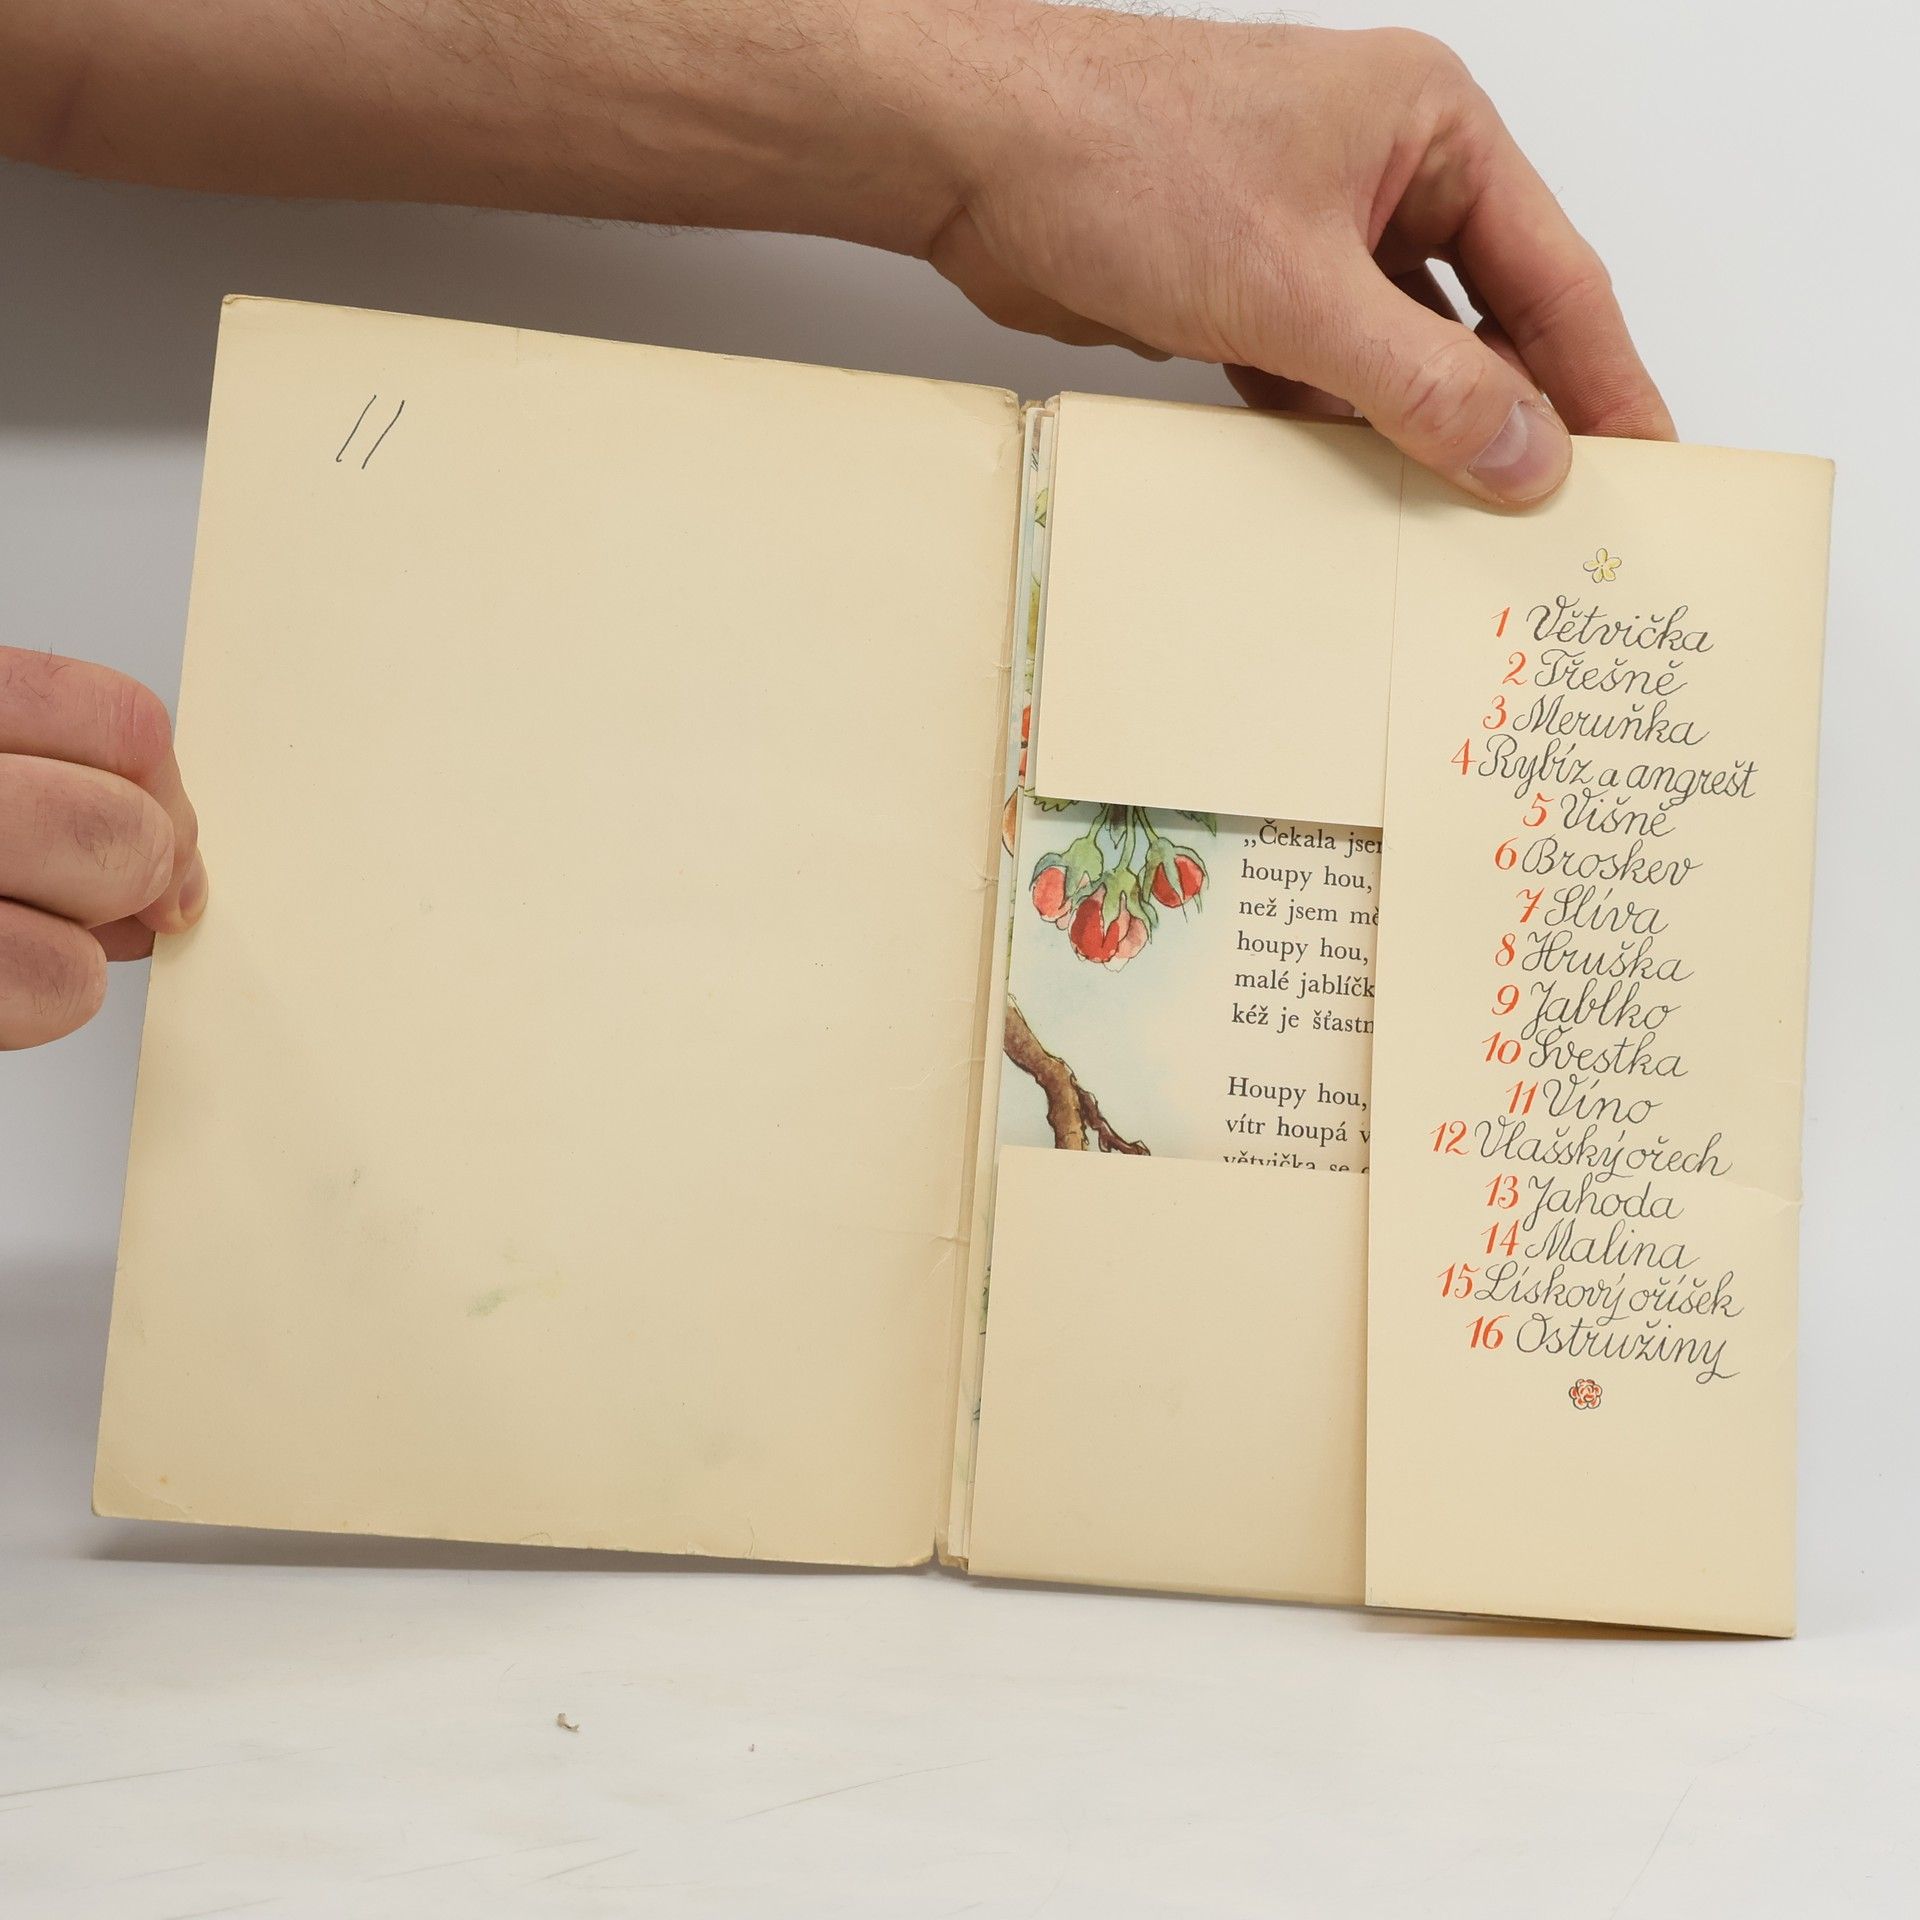 11
1 Větvička
2 Třešně
3 Meruňka
4 Rybíz a angrešt
5 Višně
6 Broskev
7 Slíva
8 Hruška
9 Jablko
10 Švestka
11 Víno
12 Vlašský ořech
13 Jahoda
14 Malina
15 Lískový oříšek
16 Ostružiny
„Čekala jsem
houpy hou,
než jsem mě
houpy hou,
malé jablíčk
kéž je šťastn
Houpy hou,
vítr houpá v
větvička se